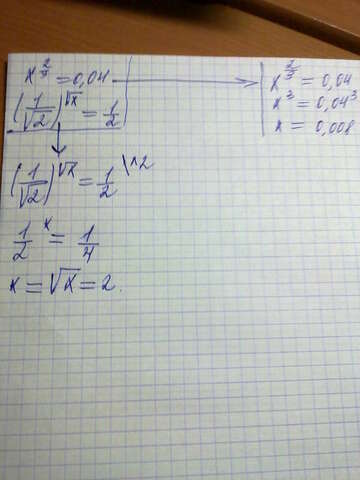 x^(2/3) = 0,04
(1/√2)^√x = 1/2
x^(2/3) = 0,04
x^3 = 0,04^3
x = 0,008
(1/√2)^√x = 1/2 |^2
1/2^x = 1/4
x = √x = 2.